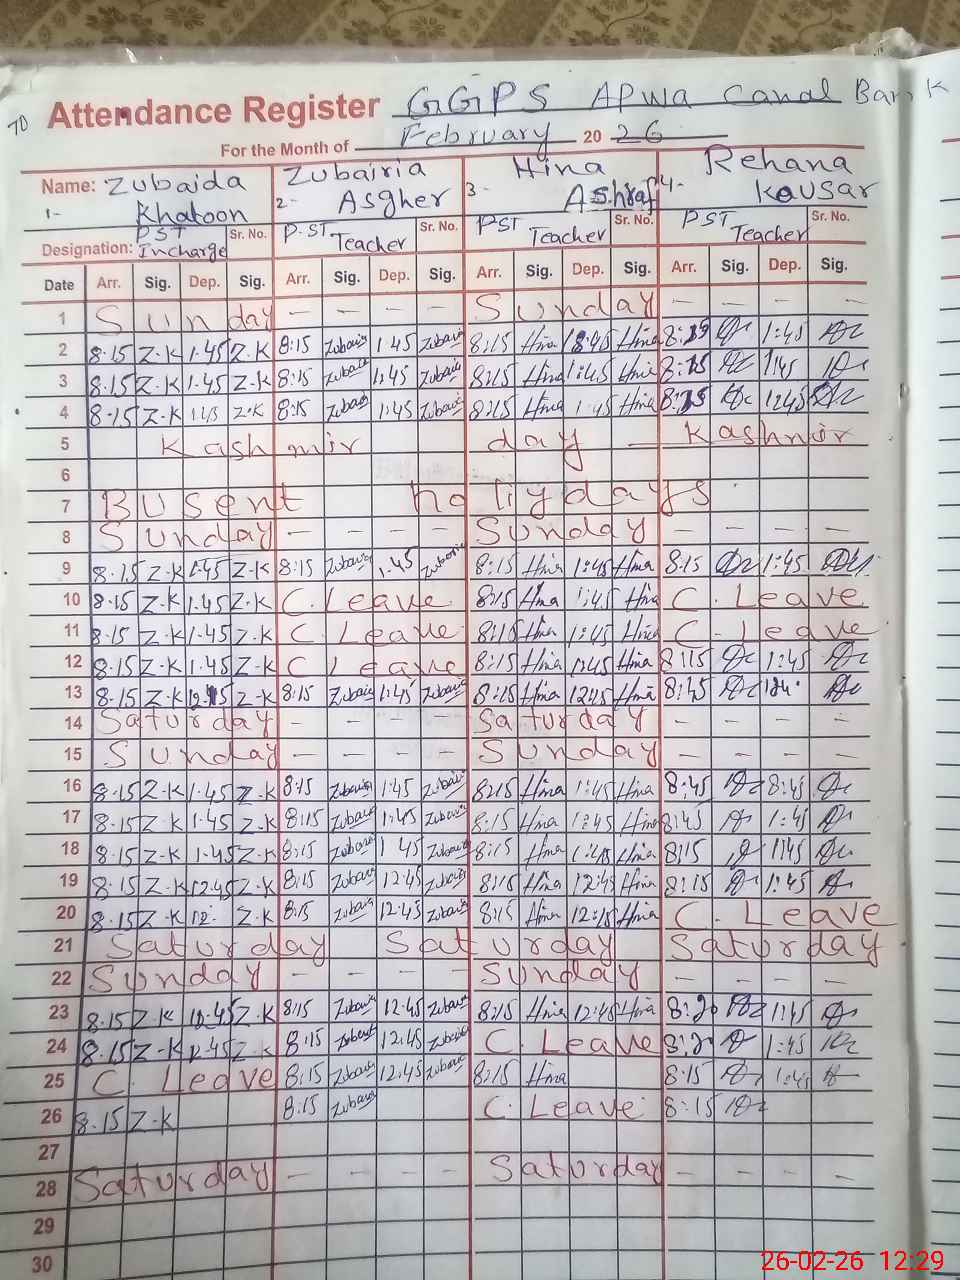 TO Attendance Register GGPS APWA Canal Bank
For the Month of February 20 26
Name: Zubaida Zubairia Hina Rehana
1- Khatoon 2- Asgher 3- Ashraf 4- Kousar
Designation: PST Incharge Sr. No. P.ST Teacher Sr. No. PST Teacher Sr. No. PST Teacher Sr. No.
Date Arr. Sig. Dep. Sig. Arr. Sig. Dep. Sig. Arr. Sig. Dep. Sig. Arr. Sig. Dep. Sig.
1 Sunday - - - - Sunday - - - -
2 8.15 Z.K 1.45 Z.K 8:15 Zubairia 1.45 Zubairia 8:15 Hina Hina 1:45
3 8.15 Z-K 1.45 Z-K 8:15 Zubairia 1:45 Zubairia 8:15 Hina 1:45 Hina 8:15 1:45
4 8.15 Z-K Z.K 8:15 Zubairia 1:45 Zubairia 8:15 Hina 1:45 Hina 8:15 1:45
5 Kashmir day - Kashmir
6
7 Busent holiydays
8 Sunday - - - - Sunday - - - -
9 8.15 Z-K 1.45 Z-K 8:15 Zubairia 1.45 Zubairia 8:15 Hina 1:45 Hina 8:15 1:45
10 8.15 Z-K 1.45 Z-K C. Leave 8:15 Hina 1:45 Hina C. Leave
11 8.15 Z-K 1.45 Z-K C. Leave 8:15 Hina 1:45 Hina C. Leave
12 8.15 Z-K 1.45 Z-K C Leave 8:15 Hina 1:45 Hina 8:15 1:45
13 8.15 Z-K Z-K 8:15 Zubairia 1:45 Zubairia 8:15 Hina 12:45 Hina 8:45
14 Saturday - - - - Saturday - - - -
15 Sunday - - - - Sunday - - - -
16 8.15 Z-K 1.45 Z-K 8:15 Zubairia 1:45 Zubairia 8:15 Hina 1:45 Hina 8:45 8:45
17 8.15 Z-K 1.45 Z-K 8:15 Zubairia 1:45 Zubairia 8:15 Hina 1:45 Hina 8:45 1:45
18 8.15 Z-K 1.45 Z-K 8:15 Zubairia 1 45 Zubairia 8:15 Hina 1:45 Hina 8:15 1:45
19 8.15 Z-K 12.45 Z-K 8:15 Zubairia 12:45 Zubairia 8:15 Hina 12:45 Hina 8:15 1:45
20 8.15 Z-K 12. Z-K 8:15 Zubairia 12:45 Zubairia 8:15 Hina 12:45 Hina C. Leave
21 Saturday Saturday Saturday
22 Sunday - - - - Sunday - - - -
23 8.15 Z-K 12.45 Z-K 8:15 Zubairia 12:45 Zubairia 8:15 Hina 12:45 Hina 8:20 1:45
24 8.15 Z-K 12.45 Z-K 8:15 Zubairia 12:45 Zubairia C. Leave 8:20 1:45
25 C. Leave 8:15 Zubairia 12:45 Zubairia 8:15 Hina 8:15 1:45
26 8.15 Z-K 8:15 Zubairia C. Leave 8:15
27
28 Saturday - - - - Saturday - - - -
29
30
26-02-26 12:29